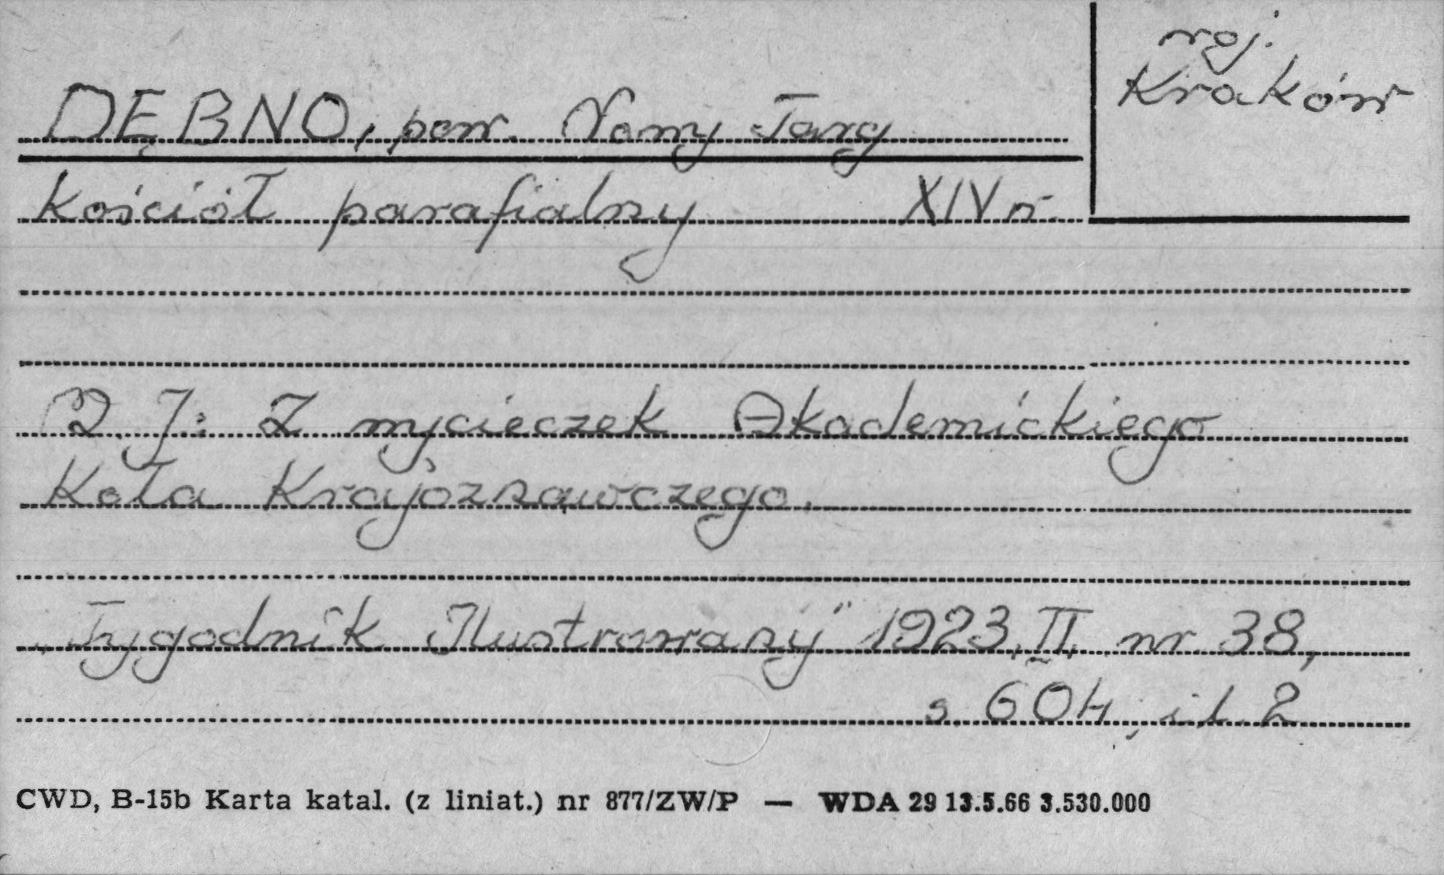 woj.
Kraków
DĘBNO, pow. Nowy Targ
Kościół parafialny XIV w.
J: Z wycieczek Akademickiego
Koła Krajoznawczego.
"Tygodnik Ilustrowany" 1923, II, nr 38,
s. 604, il. 2
CWD, B-15b Karta katal. (z liniat.) nr 877/ZW/P — WDA 29 13.5.66 3.530.000